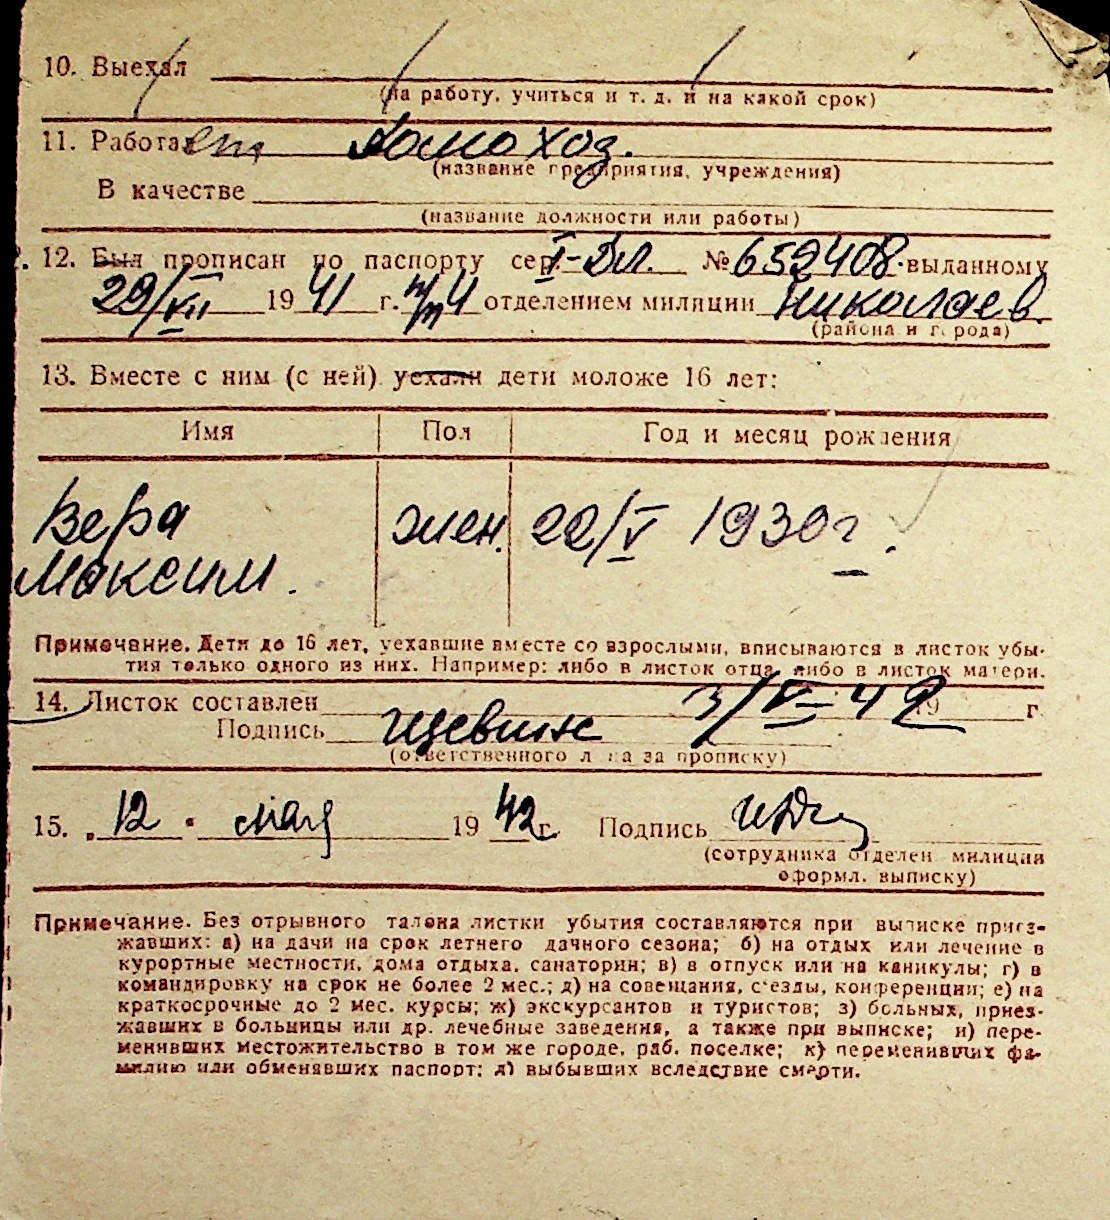 10. Выехал
(на работу, учиться и т. д. и на какой срок)
11. Работает Домохоз.
(название предприятия, учреждения)
В качестве
(название должности или работы)
12. Был прописан по паспорту сер. I-Дл. № 659408 выданному
29/VII 1941 г. 4 отделением милиции Николаев.
(района и города)
13. Вместе с ним (с ней) уехали дети моложе 16 лет:
Имя Пол Год и месяц рождения
Вера жен. 22/V 1930 г.
Максим.
Примечание. Дети до 16 лет, уехавшие вместе со взрослыми, вписываются в листок убы-
тия только одного из них. Например: либо в листок отца, либо в листок матери.
14. Листок составлен 3/V-42 19 г.
Подпись
(ответственного лица за прописку)
15. „12" мая 1942 г. Подпись
(сотрудника отделен. милиции
оформл. выписку)
Примечание. Без отрывного талона листки убытия составляются при выписке приез-
жавших: а) на дачи на срок летнего дачного сезона; б) на отдых или лечение в
курортные местности, дома отдыха, санатории; в) в отпуск или на каникулы; г) в
командировку на срок не более 2 мес.; д) на совещания, съезды, конференции; е) на
краткосрочные до 2 мес. курсы; ж) экскурсантов и туристов; з) больных, приез-
жавших в больницы или др. лечебные заведения, а также при выписке; и) пере-
менивших местожительство в том же городе, раб. поселке; к) переменивших фа-
милию или обменявших паспорт; л) выбывших вследствие смерти.